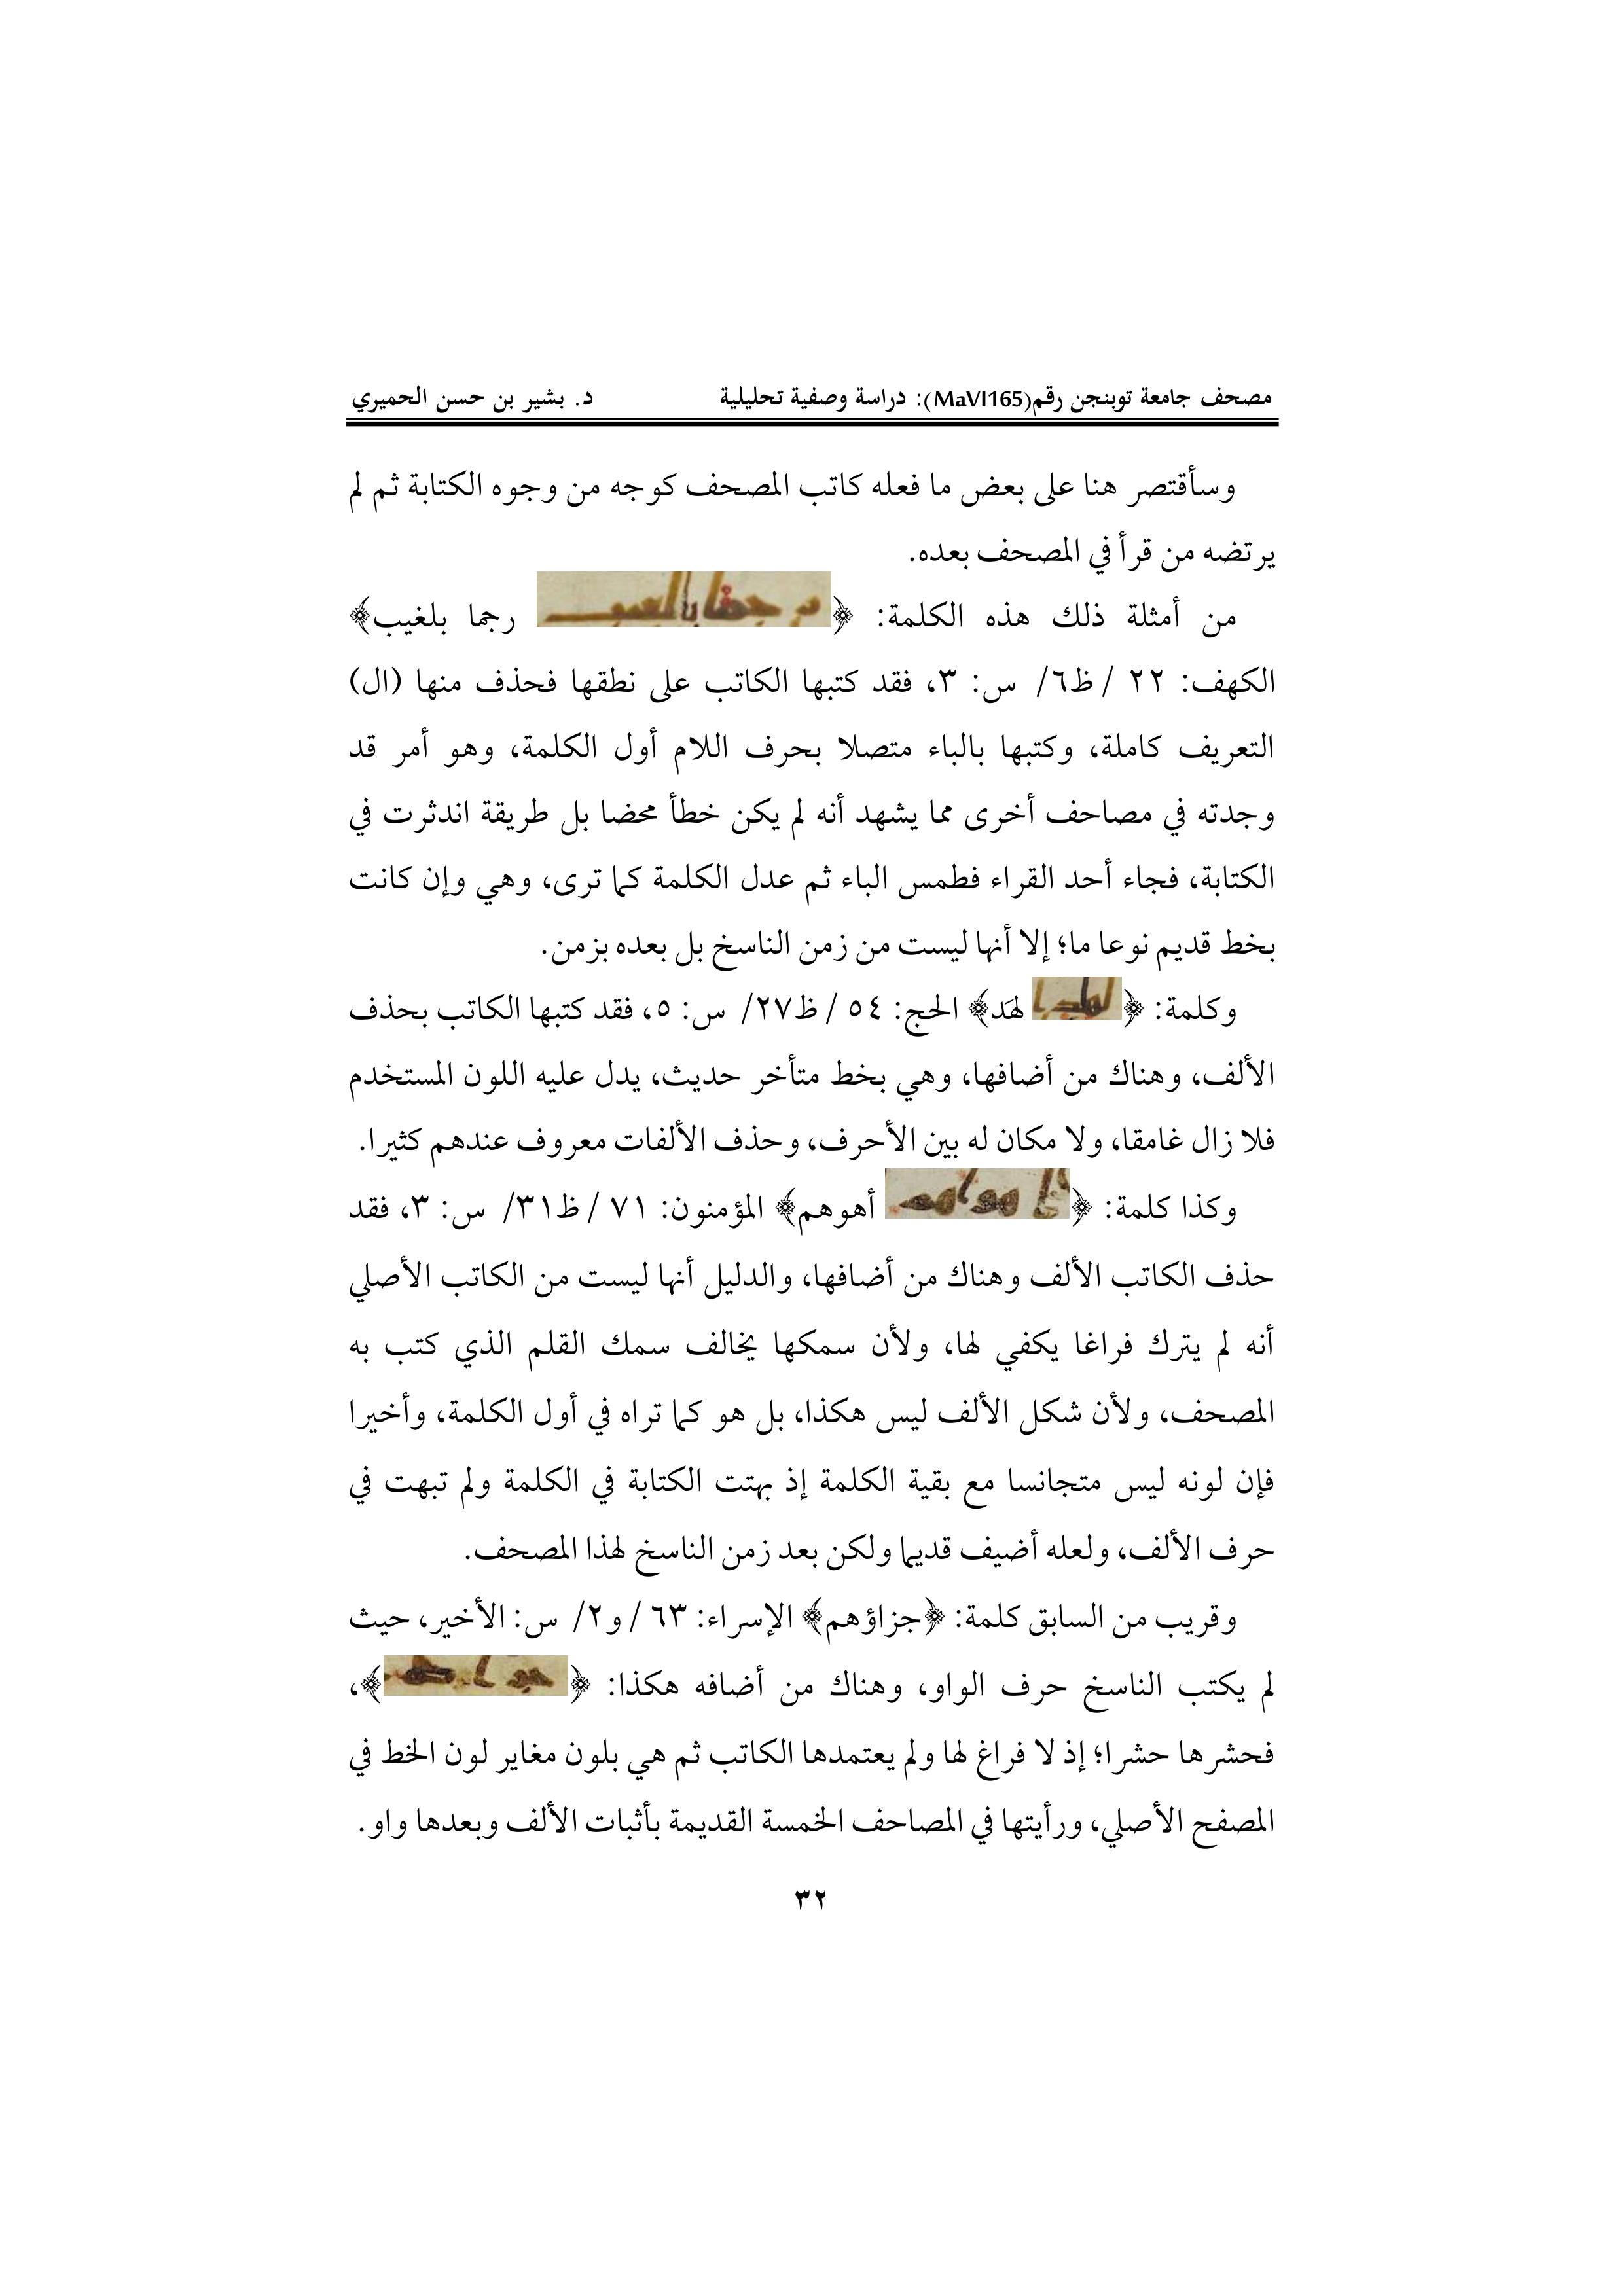 مصحف جامعة توبنجن رقم(MaVI165): دراسة وصفية تحليلية د. بشير بن حسن الحميري
وسأقتصر هنا على بعض ما فعله كاتب المصحف كوجه من وجوه الكتابة ثم لم
يرتضه من قرأ في المصحف بعده.
من أمثلة ذلك هذه الكلمة: ﴿ رجما بلغيب﴾
الكهف: ٢٢ / ظ٦/ س: ٣، فقد كتبها الكاتب على نطقها فحذف منها (ال)
التعريف كاملة، وكتبها بالباء متصلا بحرف اللام أول الكلمة، وهو أمر قد
وجدته في مصاحف أخرى مما يشهد أنه لم يكن خطأ محضا بل طريقة اندثرت في
الكتابة، فجاء أحد القراء فطمس الباء ثم عدل الكلمة كما ترى، وهي وإن كانت
بخط قديم نوعا ما؛ إلا أنها ليست من زمن الناسخ بل بعده بزمن.
وكلمة: ﴿ لهَد﴾ الحج: ٥٤ / ظ٢٧/ س: ٥، فقد كتبها الكاتب بحذف
الألف، وهناك من أضافها، وهي بخط متأخر حديث، يدل عليه اللون المستخدم
فلا زال غامقا، ولا مكان له بين الأحرف، وحذف الألفات معروف عندهم كثيرا.
وكذا كلمة: ﴿ أهوهم﴾ المؤمنون: ٧١ / ظ٣١/ س: ٣، فقد
حذف الكاتب الألف وهناك من أضافها، والدليل أنها ليست من الكاتب الأصلي
أنه لم يترك فراغا يكفي لها، ولأن سمكها يخالف سمك القلم الذي كتب به
المصحف، ولأن شكل الألف ليس هكذا، بل هو كما تراه في أول الكلمة، وأخيرا
فإن لونه ليس متجانسا مع بقية الكلمة إذ بهتت الكتابة في الكلمة ولم تبهت في
حرف الألف، ولعله أضيف قديما ولكن بعد زمن الناسخ لهذا المصحف.
وقريب من السابق كلمة: ﴿جزاؤهم﴾ الإسراء: ٦٣ / و٢/ س: الأخير، حيث
لم يكتب الناسخ حرف الواو، وهناك من أضافه هكذا: ﴿﴾،
فحشرها حشرا؛ إذ لا فراغ لها ولم يعتمدها الكاتب ثم هي بلون مغاير لون الخط في
المصفح الأصلي، ورأيتها في المصاحف الخمسة القديمة بأثبات الألف وبعدها واو.
٣٢